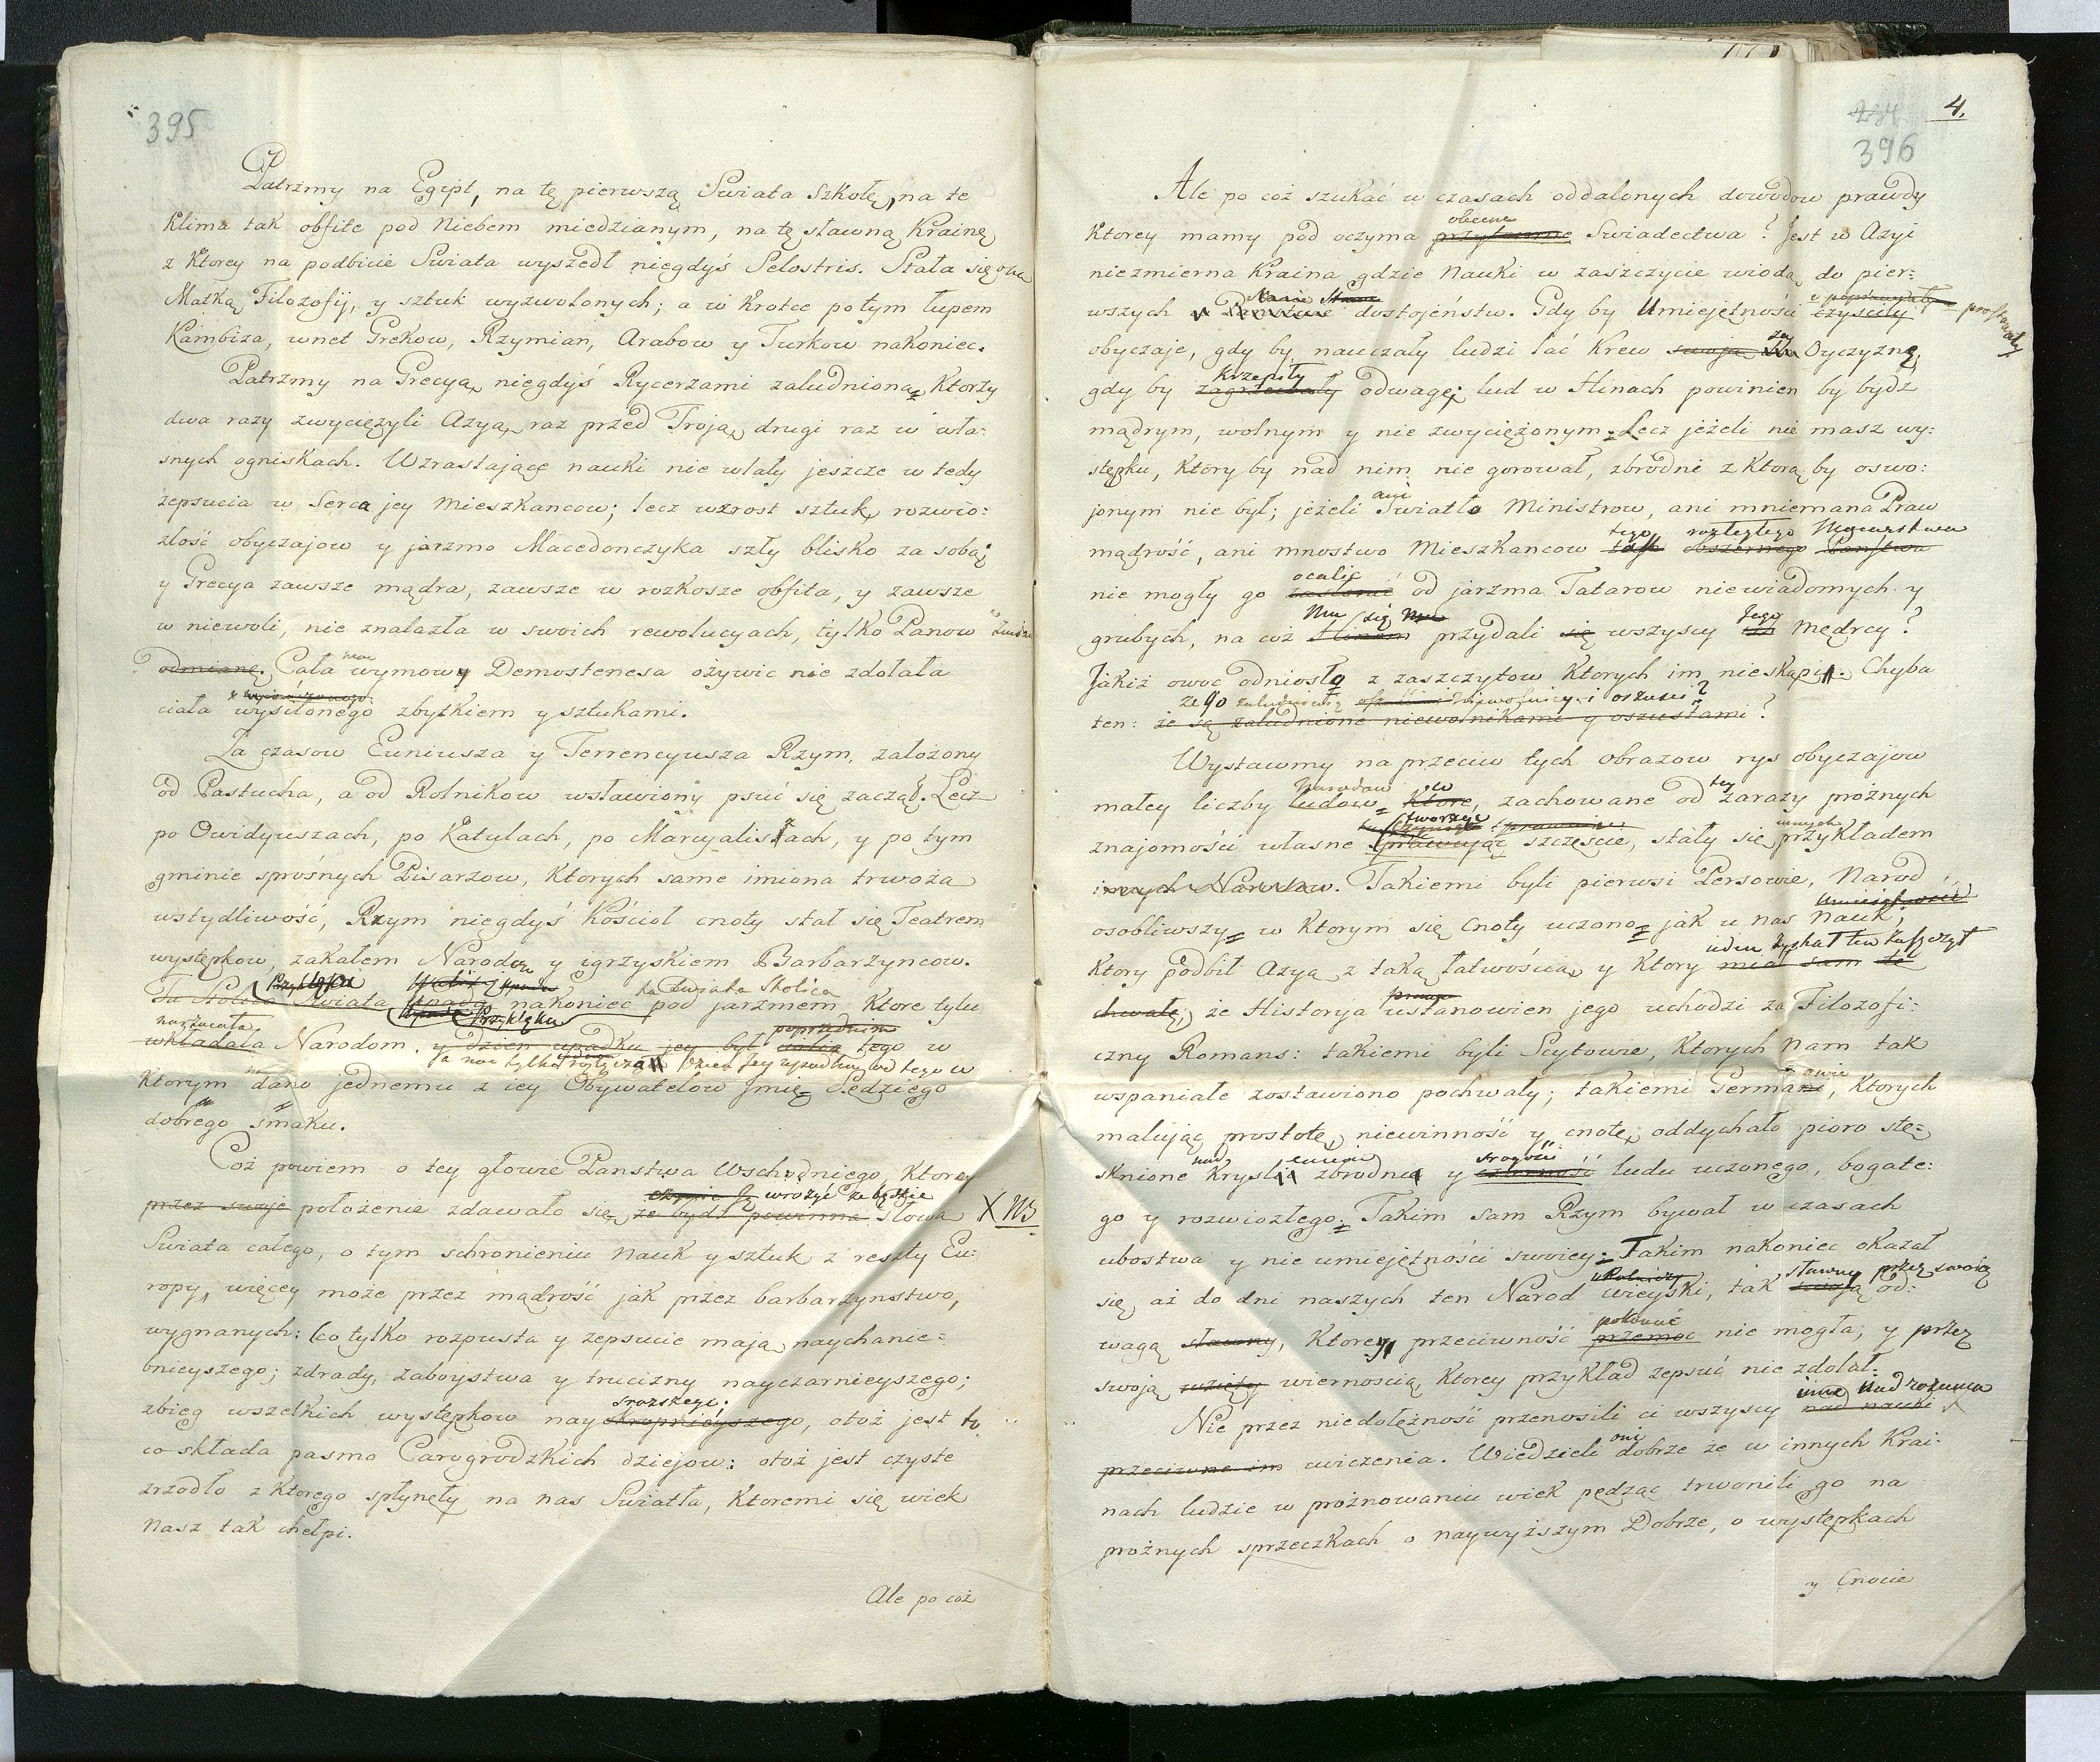 395
Patrzmy na Egipt, na tę pierwszą Swiata Szkołę, na te
klima tak obfite pod Niebem miedzianym, na tę sławną Krainę
z Ktorey na podbicie Swiata wyszedł niegdyś Sesostris. Stała się ona
Matką Filozofij, y sztuk wyzwolonych; a w krotce potym łupem
Kambiza, wnet Grekow, Rzymian, Arabow y Turkow nakoniec.
Patrzmy na Grecyą, niegdyś Rycerzami zaludnioną, Ktorzy
dwa razy zwyciężyli Azyą, raz przed Troją, drugi raz w wła:
snych ogniskach. Wzrastające nauki nie wlały jeszcze w tedy
zepsucia w Serca jey Mieszkancow; lecz wzrost sztuk, rozwio:
złość obyczajow y jarzmo Macedończyka szły blisko za sobą;
y Grecya zawsze mądra, zawsze w rozkosze obfita, y zawsze
w niewoli, nie znalazła w swoich rewolucyach, tylko Panow
odmianę. Cała wymowa Demostenesa ożywic nie zdołała
ciała wysilonego zbytkiem y sztukami.
Za czasow Enniusza y Terrencyusza Rzym, założony
od Pastucha, a od Rolnikow wsławiony psuć się zaczął. Lecz
po Owidyuszach, po Katulach, po Marcyalisach, y po tym
gminie sprośnych Pisarzow, Ktorych same imiona trwożą
wstydliwość, Rzym niegdyś Kościoł cnoty stał się Teatrem
występkow, zakałem Narodow y igrzyskiem Barbarzyncow.
ta Swiata Stolica
Ta Stolica Swiata upada nakoniec pod jarzmem Ktore tylu
narzucała poprzednim
wkładała Narodom. y dzień upadku jey był tego w
Ktorym dano jednemu z iey Obywatelow Jmię Sędziego
dobrego smaku.
Coż powiem o tey głowie Panstwa Wschodniego, Ktorey
wrożyć że będzie
przez swoje położenie zdawało się że bydź powinna Głowa X NB
Swiata całego, o tym schronieniu Nauk y sztuk z reszty Eu:
ropy, więcey może przez mądrość jak przez barbarzynstwo,
wygnanych: co tylko rozpusta y zepsucie mają naychanie:
bnieyszego; zdrady, zaboystwa y trucizny nayczarnieyszego;
zbieg wszelkich występkow nayokropnieyszego, otoż jest to,
co składa pasmo Carogrodzkich dziejow: otoż jest czyste
zrzodło z Ktorego spłynęły na nas Swiatła, Ktoremi się wiek
Nasz tak chełpi.
Ale po coż
4.
234
396
Ale po coż szukać w czasach oddalonych dowodow prawdy
obecne
Ktorey mamy pod oczyma przytomne Swiadectwa? Jest w Azyi
niezmierna Kraina gdzie Nauki w zaszczycie wiodą do pier:
wszych w Panstwie dostojeństw. Gdy by Umiejętności czyściły prostowały
obyczaje, gdy by nauczały ludzi lać Krew swoją za Oyczyznę,
krzepiły
gdy by zagrzewały odwagę; lud w Hinach powinien by bydź
mądrym, wolnym y nie zwyciężonym. Lecz jeżeli nie masz wy:
stępku, Ktory by nad nim nie gorował, zbrodni z Ktorą by oswo:
ani
jonym nie był; jeżeli Swiatło Ministrow, ani mniemana Praw
tego rozległego Mocarstwa
mądrość, ani mnostwo Mieszkancow tak obszernego Państwa
ocalić
nie mogły go zasłonić od jarzma Tatarow niewiadomych y
Mu się Jego
grubych, na coż Hinom przydali się wszyscy ich Mędrcy?
Jakiż owoc odniosło z zaszczytow Ktorych im nieskąpił. Chyba
że go zaludniają niewolnicy i oszuści?
ten: że się zaludnione niewolnikami y oszustami?
Wystawmy naprzeciw tych obrazow rys obyczajow
Narodow co tey
małey liczby ludow, Ktore, zachowane od zarazy prożnych
tworząc innych
znajomości własne sprawując szczęście, stały się przykładem
innych Narodow. Takiemi byli pierwsi Persowie, Narod
Umiejętności
osobliwszy, w Ktorym się Cnoty uczono, jak u nas Nauk;
Ktory podbił Azyą z taką łatwością, y Ktory miał sam tę
chwałę, że Historya ustanowien jego uchodzi za Filozofi:
czny Romans: takiemi byli Scytowie, Ktorych Nam tak
owie
wspaniałe zostawiono pochwały; takiemi Germani, Ktorych
malując prostotę, niewinność y cnotę, oddychało pioro stę:
srogości
sknione Kryslić zbrodnie y czarność ludu uczonego, bogate:
go y rozwiozłego. Takim sam Rzym bywał w czasach
ubostwa y nie umiejętności swoiey. Takim nakoniec okazał
sławny przez swoię
się, aż do dni naszych ten Narod wieyski, tak swoją od:
pokonać
wagą sławny, Ktorey przeciwność przemoc nie mogła; y przez
swoją wzięty wiernością Ktorey przykład zepsuć nie zdołał.
inne Nad rozumu
Nie przez niedołężność przenosili ci wszyscy nad nauki
oni
przeciwne im cwiczenia. Wiedzieli dobrze że w innych Krai:
nach ludzie w prożnowaniu wiek pędząc trwonili go na
prożnych sprzeczkach o naywyższym Dobrze, o występkach
y Cnocie